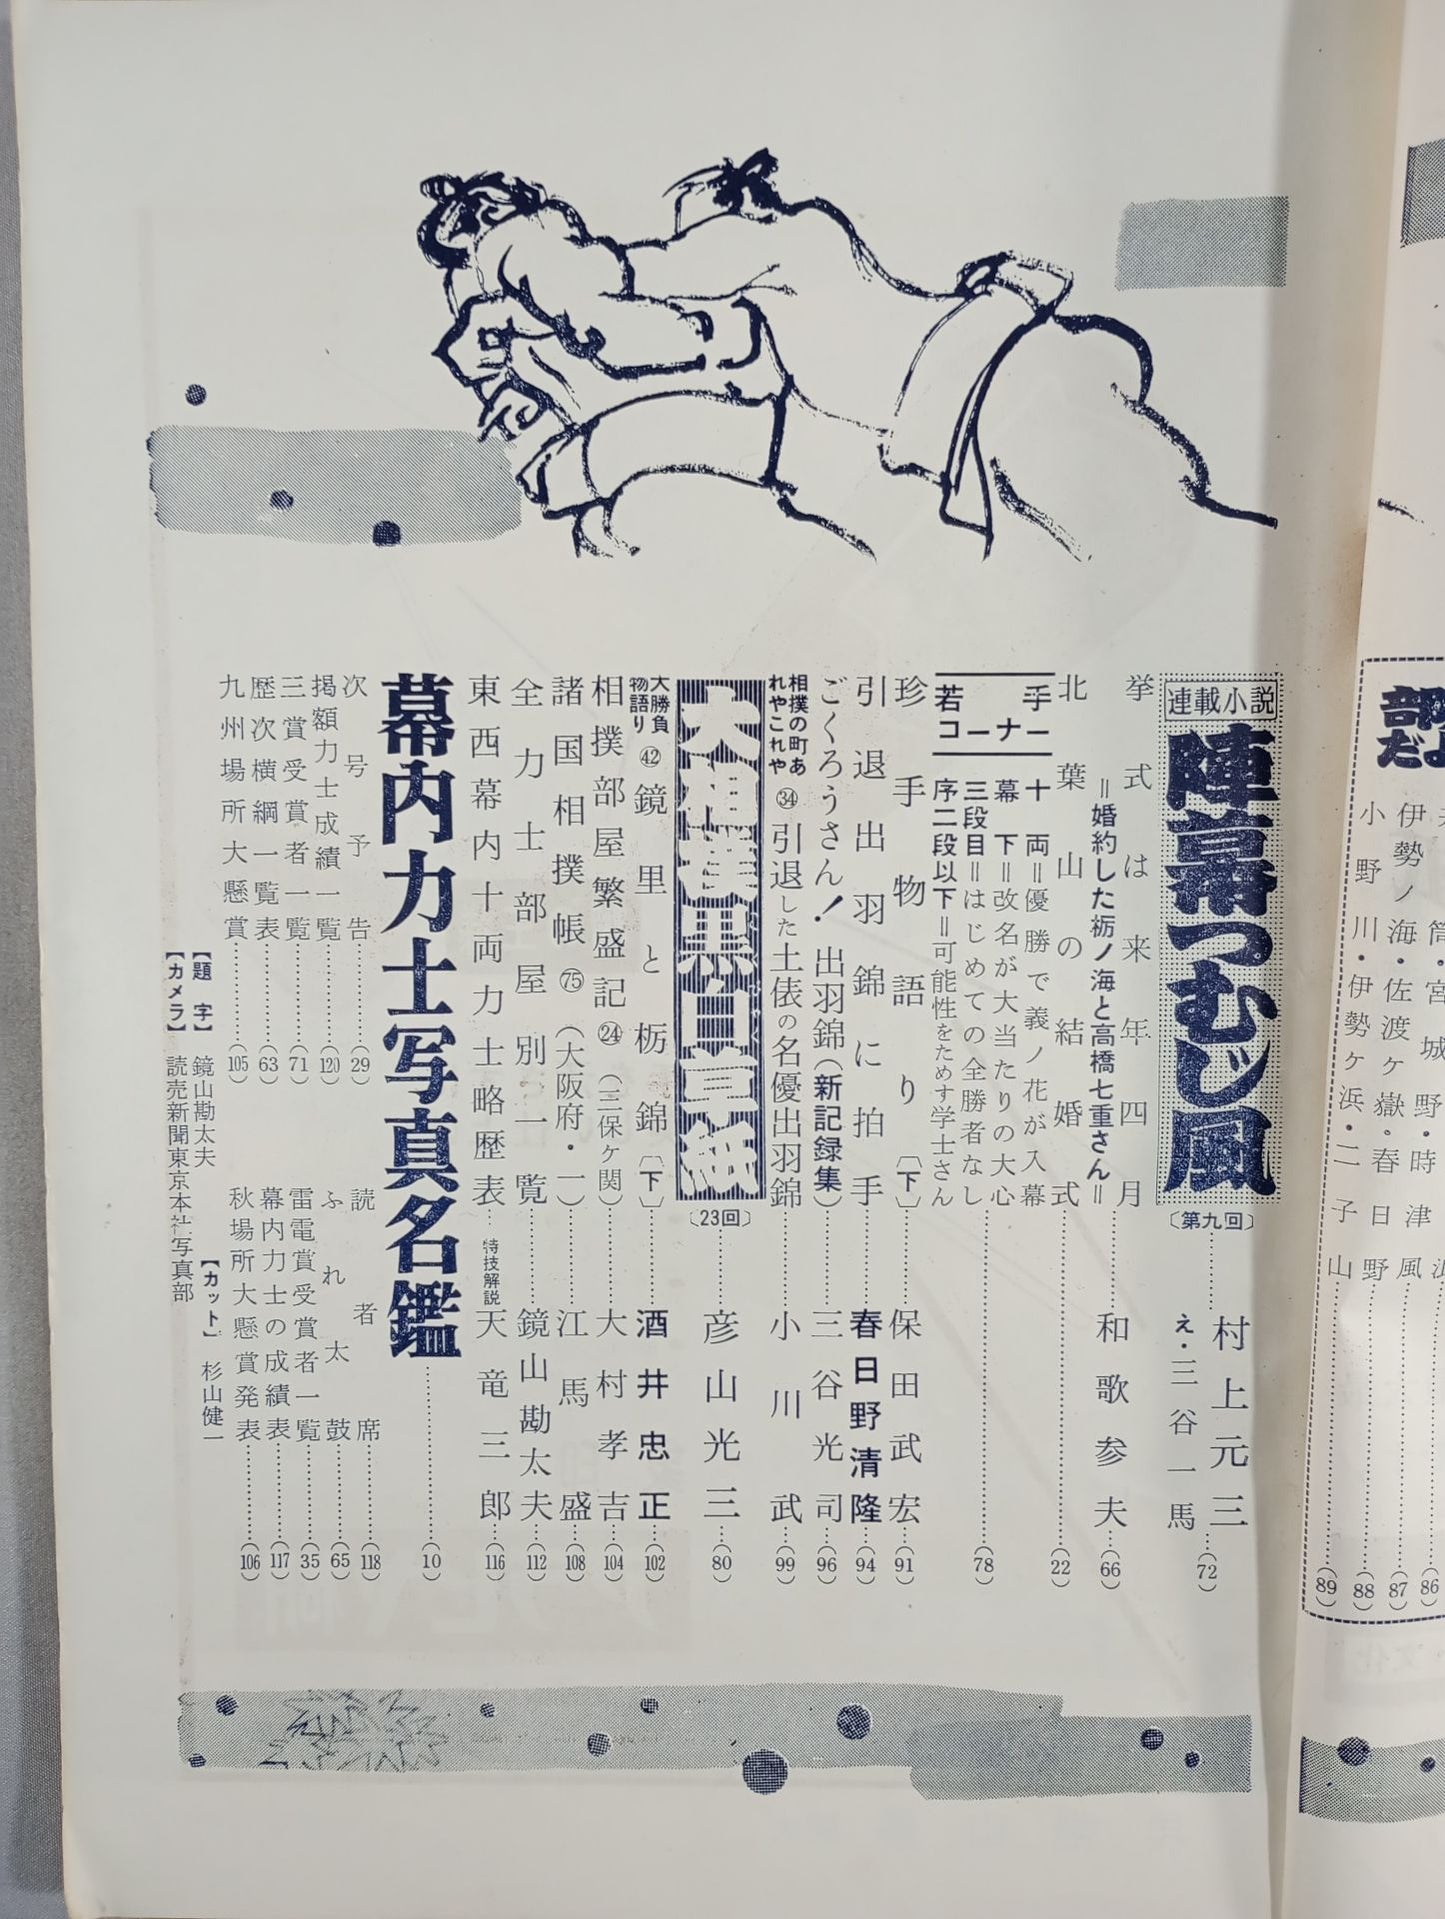 連載小説
陣幕つむじ風〔第九回〕……村上元三(72)
え・三谷一馬
挙式は来年四月……和歌参夫(66)
=婚約した栃ノ海と高橋七重さん=
北葉山の結婚式……(22)
若手コーナー……(78)
十両=優勝で義ノ花が入幕
幕下=改名が大当たりの大心
三段目=はじめての全勝者なし
序二段以下=可能性をためす学士さん
珍手物語り〔下〕……保田武宏(91)
引退出羽錦に拍手……春日野清隆(94)
ごくろうさん!出羽錦(新記録集)……三谷光司(96)
相撲の町あれやこれや㉞引退した土俵の名優出羽錦……小川武(99)
大相撲黒員眞紙〔23回〕……彦山光三(80)
大勝負物語り㊷鏡里と栃錦〔下〕……酒井忠正(102)
相撲部屋繁盛記㉔(三保ヶ関)……大村孝吉(104)
諸国相撲帳(75)(大阪府・一)……江馬盛(108)
全力士部屋別一覧……鏡山勘太夫(112)
東西幕内十両力士略歴表…特技解説 天竜三郎(116)
幕内力士写真名鑑……(10)
次号予告……(29)
掲額力士成績一覧……(120)
三賞受賞者一覧……(71)
歴次横綱一覧表……(63)
九州場所大懸賞……(105)
読者席……(118)
ふれ太鼓……(65)
雷電賞受賞者一覧……(35)
幕内力士の成績表……(117)
秋場所大懸賞発表……(106)
【題字】鏡山勘太夫
【カット】杉山健一
【カメラ】読売新聞東京本社写真部
伊勢ノ海・佐渡ヶ嶽・春日野
小野川・伊勢ヶ浜・二子山
(86)
(87)
(88)
(89)